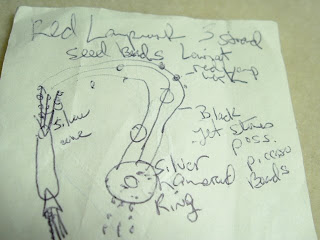 Red Lampwork 3 strand
seed Beads Lariat
red lamp
work
Black
Jet stones
poss.
picasso
Beads
Silver
cone
Silver
Hammered
Ring